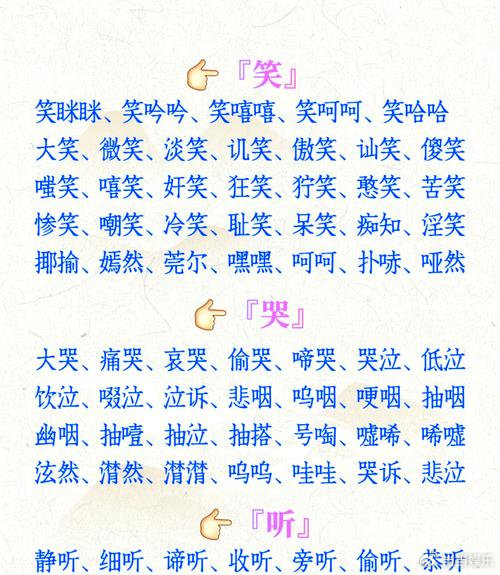 『笑』
笑眯眯、笑吟吟、笑嘻嘻、笑呵呵、笑哈哈
大笑、微笑、淡笑、讥笑、傲笑、讪笑、傻笑
嗤笑、嘻笑、奸笑、狂笑、狞笑、憨笑、苦笑
惨笑、嘲笑、冷笑、耻笑、呆笑、痴知、淫笑
揶揄、嫣然、莞尔、嘿嘿、呵呵、扑哧、哑然
『哭』
大哭、痛哭、哀哭、偷哭、啼哭、哭泣、低泣
饮泣、啜泣、泣诉、悲咽、呜咽、哽咽、抽咽
幽咽、抽噎、抽泣、抽搭、号啕、嘘唏、唏嘘
泫然、潸然、潸潸、呜呜、哇哇、哭诉、悲泣
『听』
静听、细听、谛听、收听、旁听、偷听、恭听